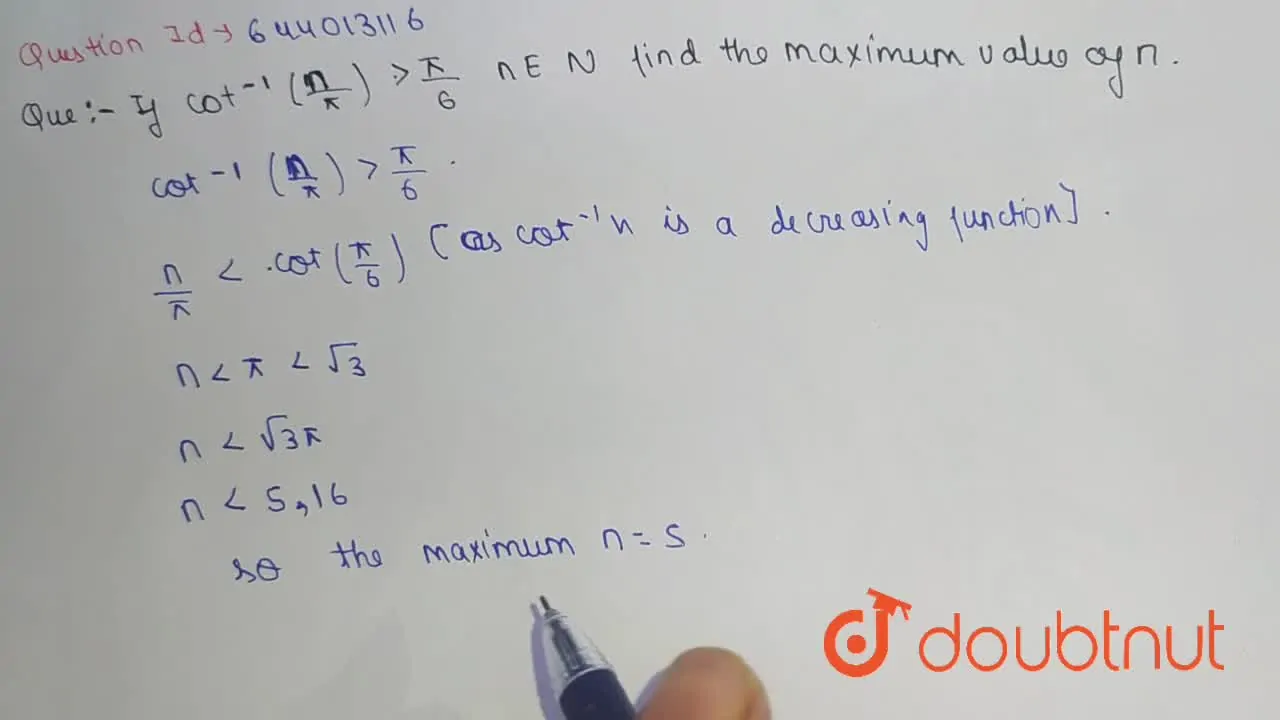 Question Id → 644013116
Que :- If cot⁻¹ (n/π) > π/6 n ∈ N find the maximum value of n.
cot⁻¹ (n/π) > π/6 .
n/π < .cot(π/6) [as cot⁻¹n is a decreasing function] .
n < π < √3
n < √3π
n < 5,16
so the maximum n = 5 .
doubtnut